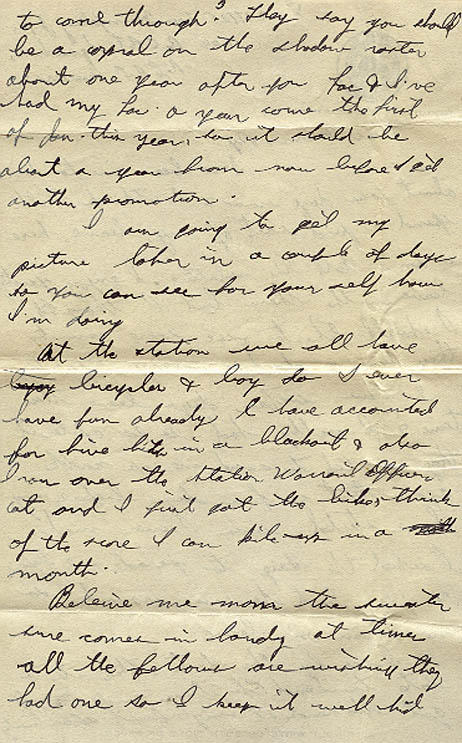 to come through? They say you should
be a corpral on the shadow roster
about one year after you Lac & I've
had my Lac a year come the first
of Jan. this year, so it should be
about a year from now before I get
another promotion.
I am going to get my
picture taken in a couple of days
so you can see for your self how
I'm doing
At the station we all have
bicycles & boy do I ever
have fun already I have accounted
for five hits in a blackout & also
I ran over the Station Warrant Officers
cat and I just got the bike, think
of the score I can pile up in a
month.
Beleive me mom the sweater
sure comes in handy at times
all the fellows are wishing they
had one so I keep it well hid